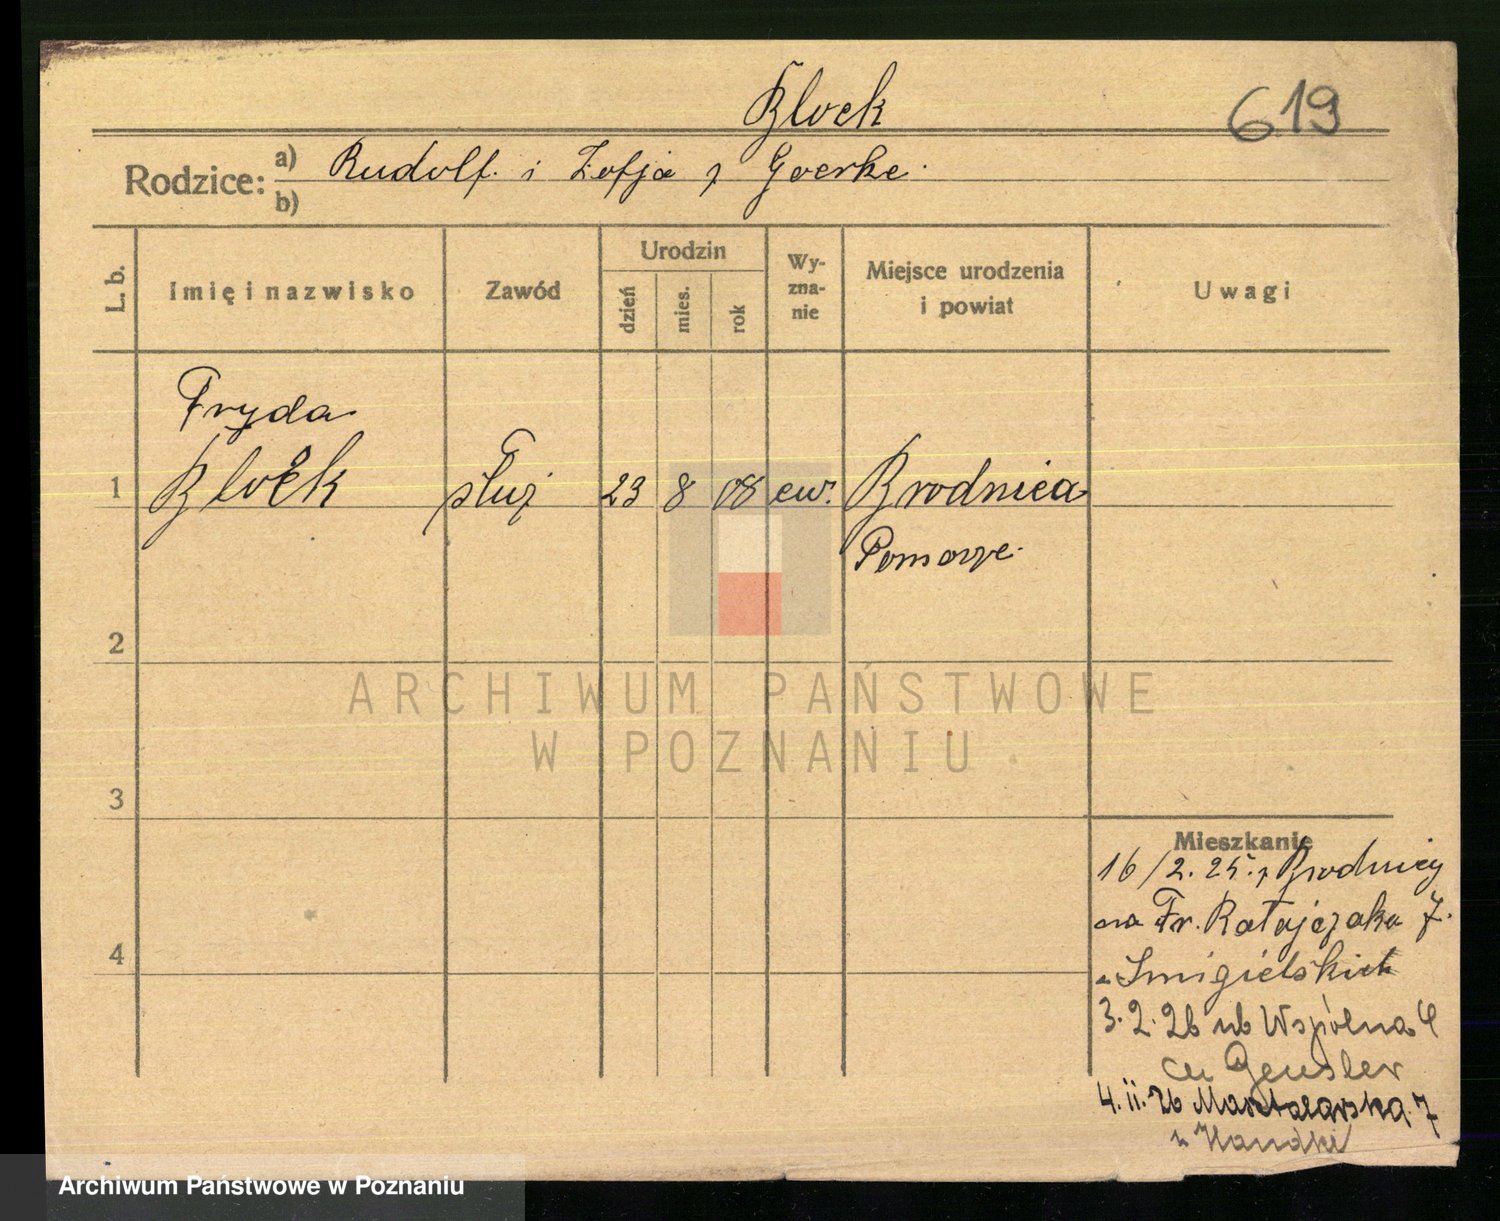 Block
619
Rodzice: a) Rudolf. i Zofja z Goerke.
b)
L. b.
Imię i nazwisko
Zawód
Urodzin
dzień
mies.
rok
Wy-
zna-
nie
Miejsce urodzenia
i powiat
Uwagi
Fryda
1 Block służ 23 8 08 ew. Brodnica
Pomorze.
2
ARCHIWUM PAŃSTWOWE
W POZNANIU
3
Mieszkanie
16/2. 25. z Brodnicy
na Fr. Ratajczaka 7.
Smigielskich
4
3. 2. 26 ul Wspólna
Geusler
4. 11. 26 Masztalarska 7
u Handke
Archiwum Państwowe w Poznaniu